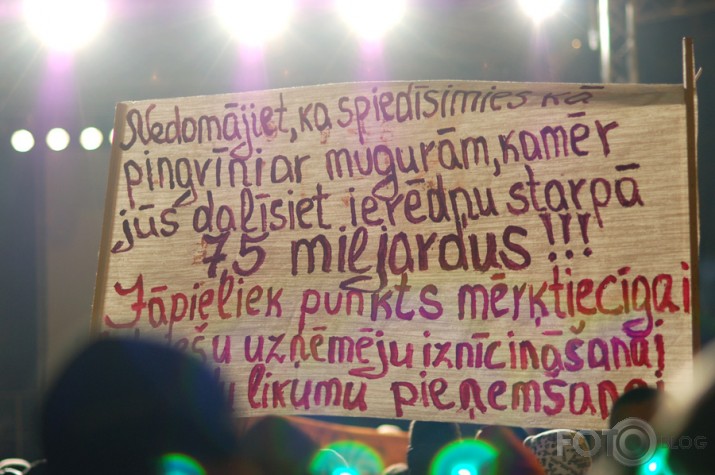 Nedomājiet, ka spiedīsimies kā
pingvīni ar mugurām, kamēr
jūs dalīsiet ierēdņu starpā
75 miljardus!!!
Jāpieliek punkts mērķtiecīgai
uzņēmēju iznīcināšanai
likumu pieņemšanai
FOTOBLOG